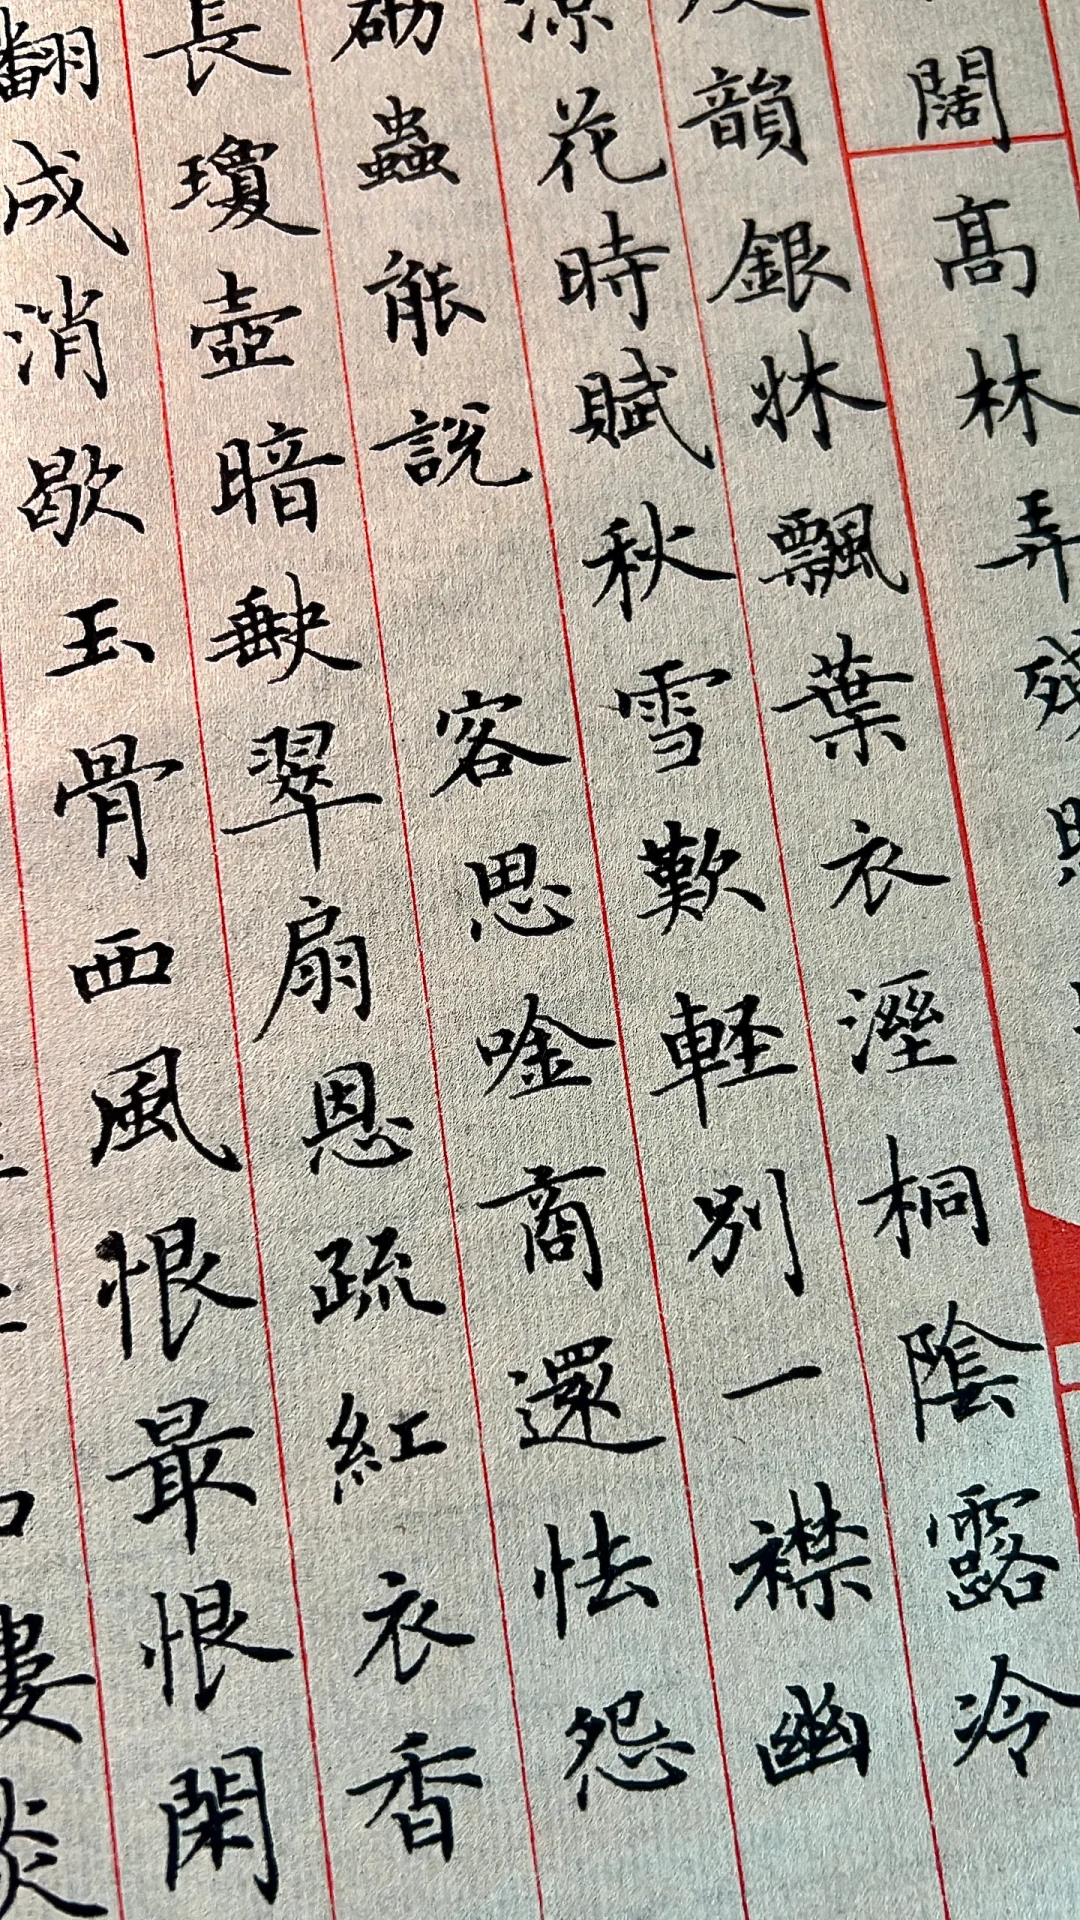 闊高林弄殘照
韻銀牀飄葉衣溼桐陰露冷
涼花時賦秋雪歎軽別一襟幽
砌蟲能說 客思唫商還怯怨
長瓊壺暗缺翠扇恩疏紅衣香
翻成消歇玉骨西風恨最恨閑